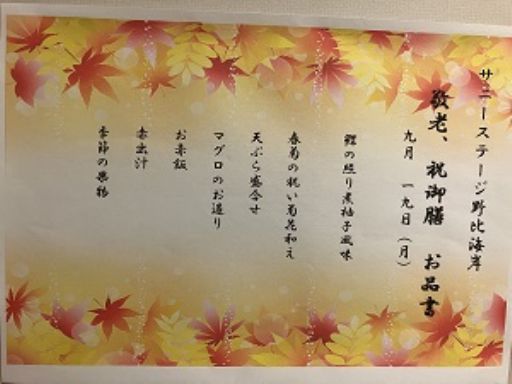 サニーステージ野比海岸
敬老、祝御膳　お品書
九月　一九日（月）
鰹の照り煮柚子風味
春菊の祝い菊花和え
天ぷら盛合せ
マグロのお造り
お赤飯
赤出汁
季節の果物